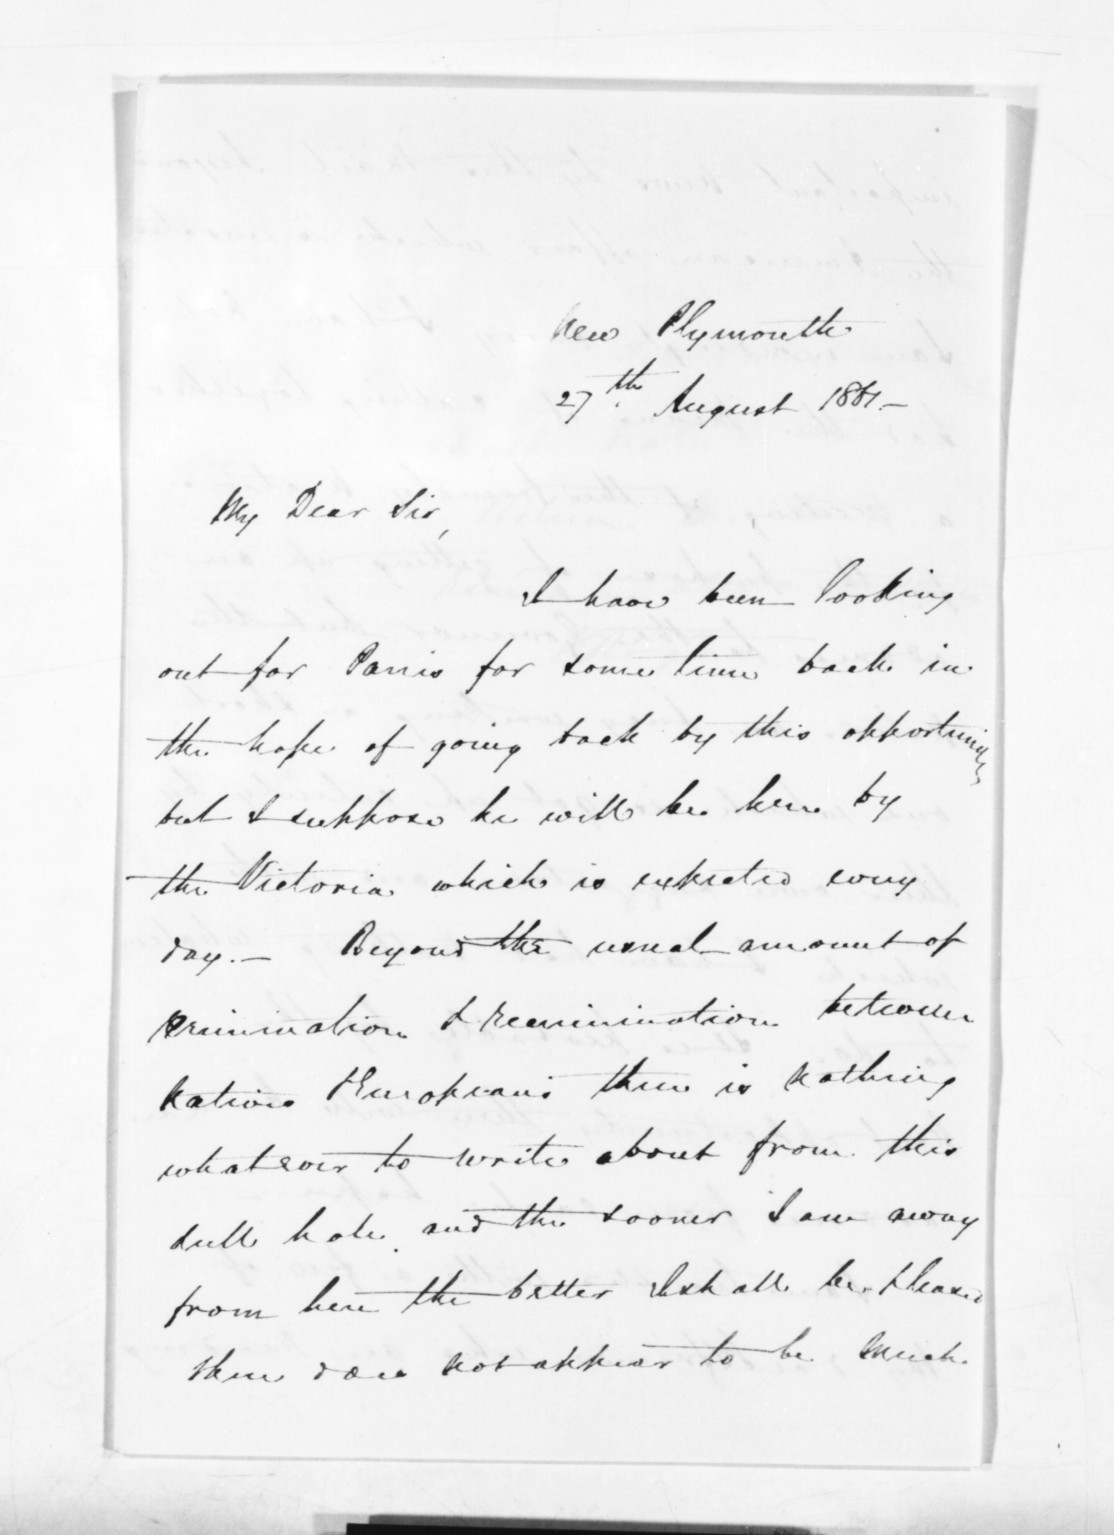 New Plymouth
27th August 1861.—
My Dear Sir,
I have been looking
out for Parris for some time back in
the hope of going back by this opportunity
but I suppose he will be here by
the Victoria which is expected every
day.— Beyond the usual amount of
crimination & recrimination between
Natives & Europeans there is nothing
whatever to write about from this
dull hole, and the sooner I am away
from here the better I shall be pleased
there does not appear to be much